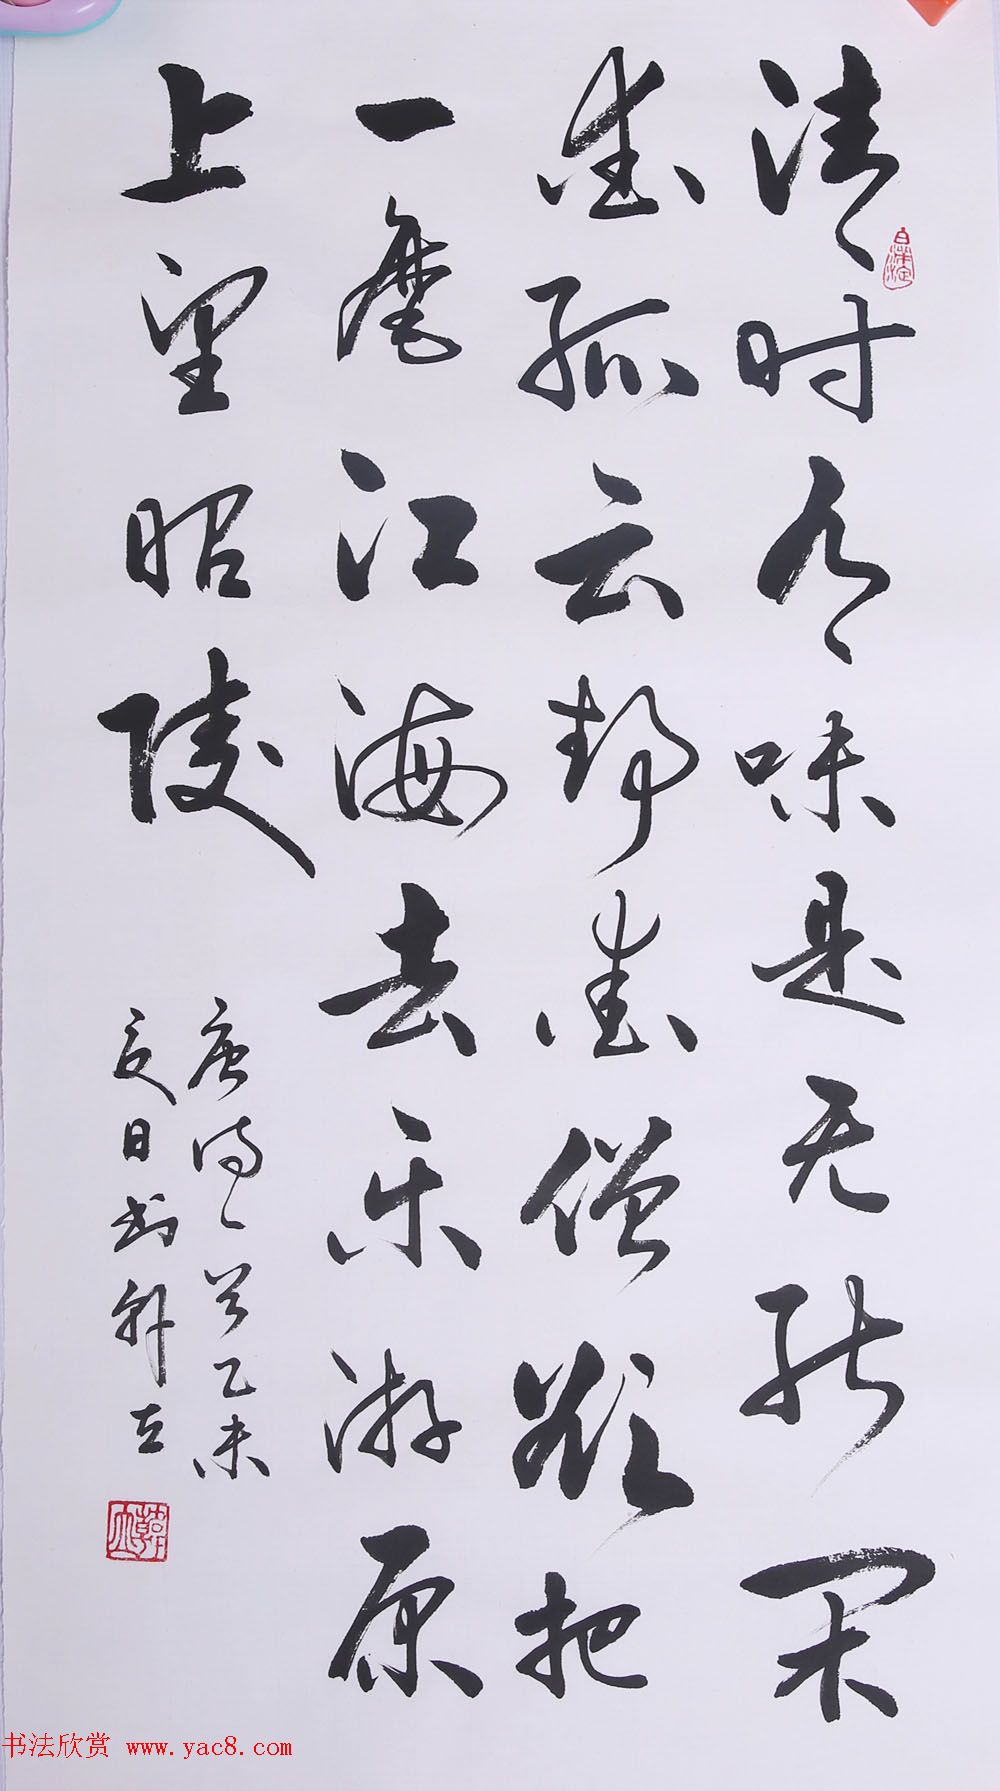 清时有味是无能闲
爱孤云静爱僧欲把
一麾江海去乐游原
上望昭陵
唐诗一首乙未
夏日书韩立
书法欣赏 www.yac8.com